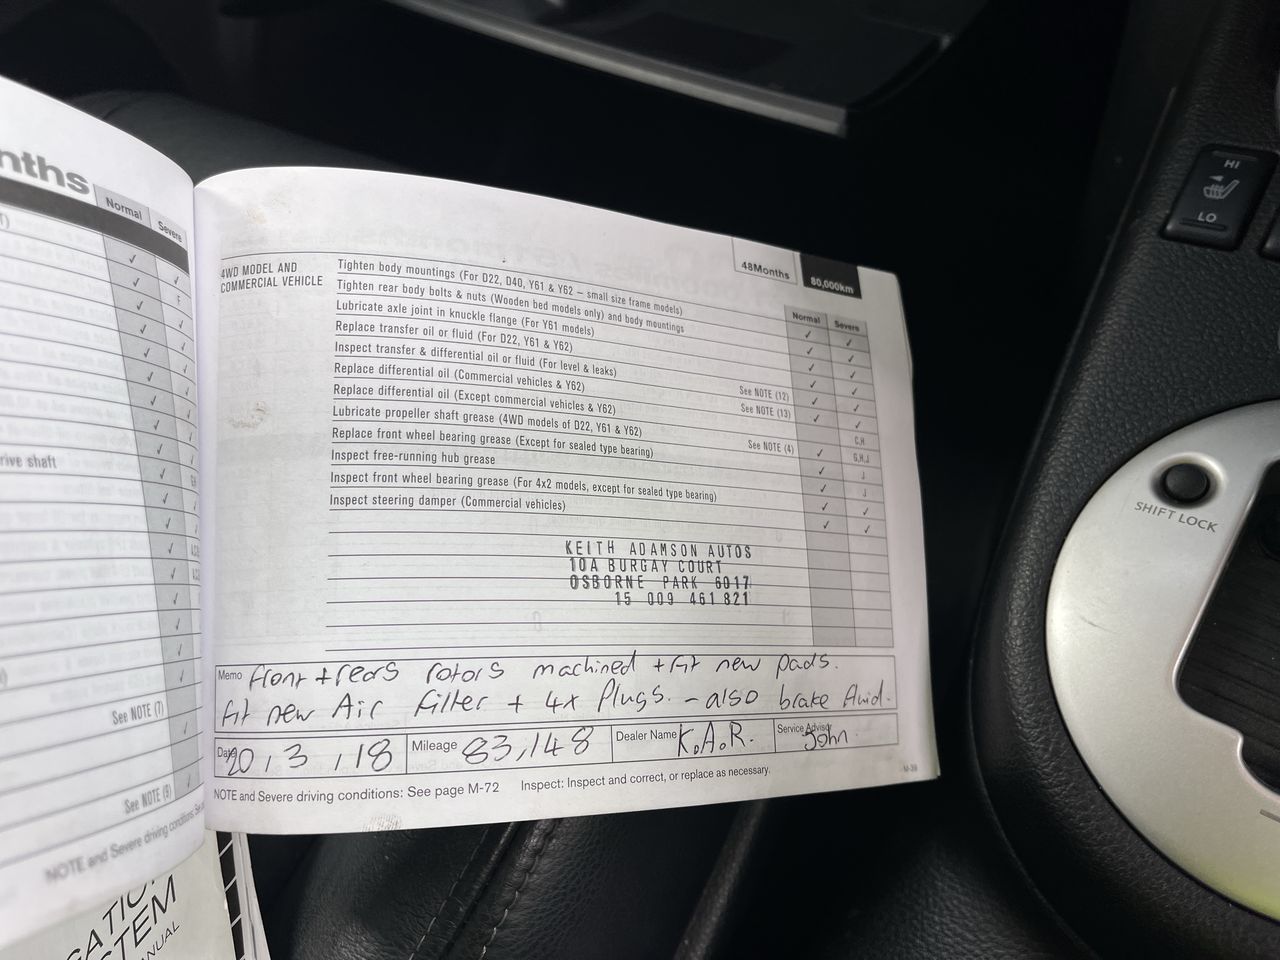 nths
Normal
Severe
rive shaft
See NOTE (7)
See NOTE (9)
NOTE and Severe driving conditions: See
STEM
4WD MODEL AND
COMMERCIAL VEHICLE
48Months
80,000km
Normal
Severe
Tighten body mountings (For D22, D40, Y61 & Y62 – small size frame models)
Tighten rear body bolts & nuts (Wooden bed models only) and body mountings
Lubricate axle joint in knuckle flange (For Y61 models)
Replace transfer oil or fluid (For D22, Y61 & Y62)
Inspect transfer & differential oil or fluid (For level & leaks)
Replace differential oil (Commercial vehicles & Y62) See NOTE (12)
Replace differential oil (Except commercial vehicles & Y62) See NOTE (13)
Lubricate propeller shaft grease (4WD models of D22, Y61 & Y62)
Replace front wheel bearing grease (Except for sealed type bearing) See NOTE (4)
Inspect free-running hub grease
Inspect front wheel bearing grease (For 4x2 models, except for sealed type bearing)
Inspect steering damper (Commercial vehicles)
C,H
G,H,J
J
J
KEITH ADAMSON AUTOS
10A BURGAY COURT
OSBORNE PARK 6017
15 009 461 821
Memo front + rears rotors machined + fit new pads.
fit new Air filter + 4x Plugs. - also brake fluid.
Date 20, 3, 18 Mileage 83,148 Dealer Name K.A.R. Service Advisor John
NOTE and Severe driving conditions: See page M-72 Inspect: Inspect and correct, or replace as necessary.
M-39
HI
LO
SHIFT LOCK